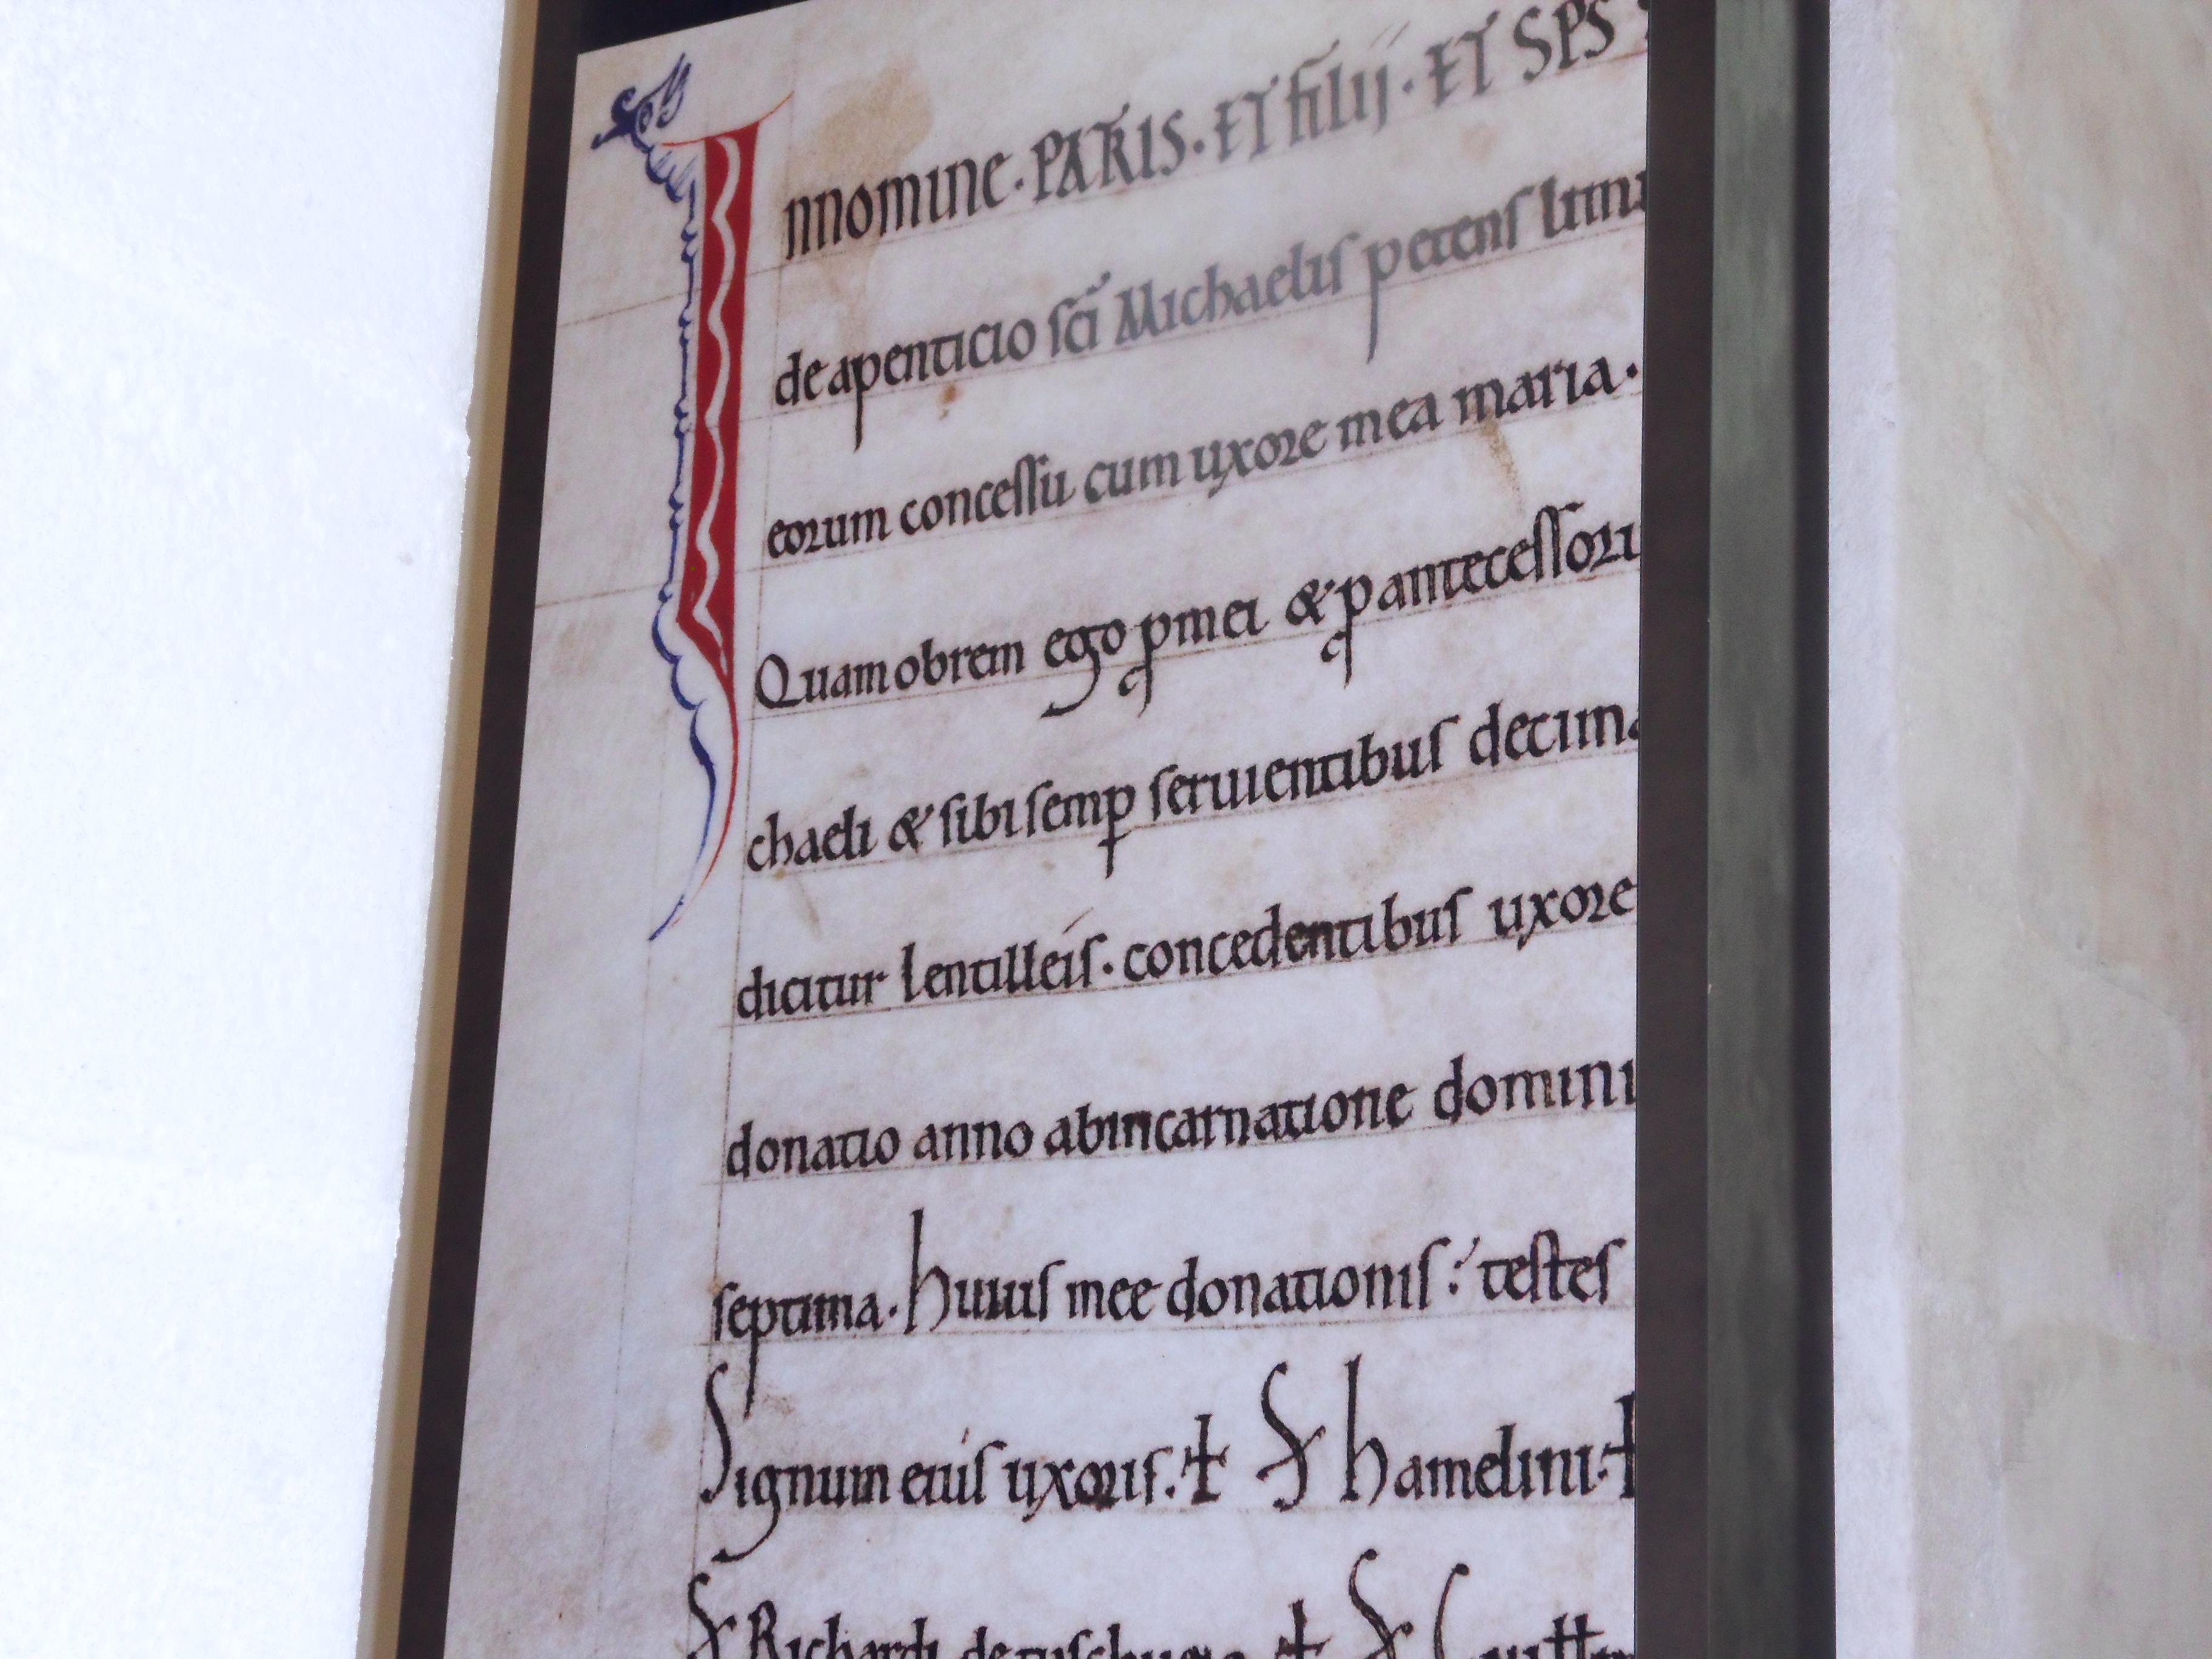 Innomine · PATRIS · ET filii · ET SPS
deapenticio sci Michaelis petens
eorum concessu cum uxore mea maria ·
Quamobrem ego pmei & p antecessoru
chaeli & sibi semp seruientibus decima
dicitur lentilleis · concedentibus uxore
donatio anno abincarnatione domini
septima · huius mee donationis : testes
Signum eius uxoris . + & hamelini · +
& Richardi + &